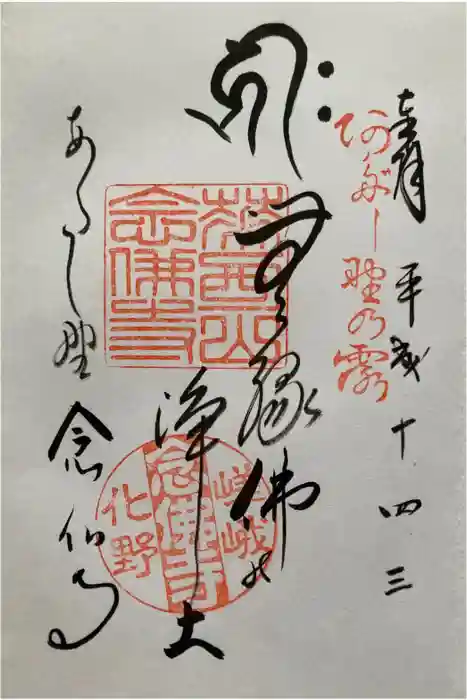 奉拝 平成十四三
阿だし野乃露
無縁佛の
浄土
華西山
念佛寺
嵯峨
念佛寺
化野
あだし野 念仏寺